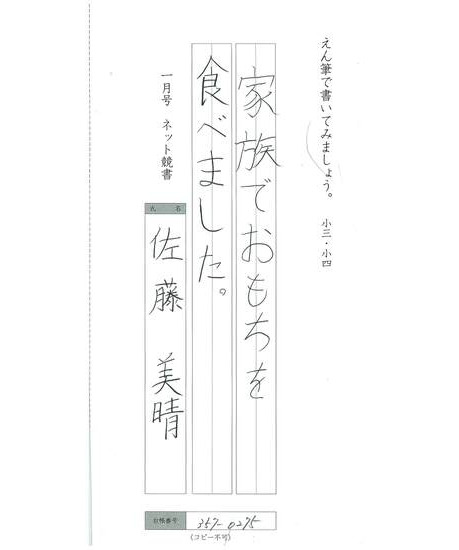 えん筆で書いてみましょう。 小三・小四
家族でおもちを
食べました。
一月号 ネット競書
氏名
佐藤 美晴
台帳番号 357-0275
(コピー不可)